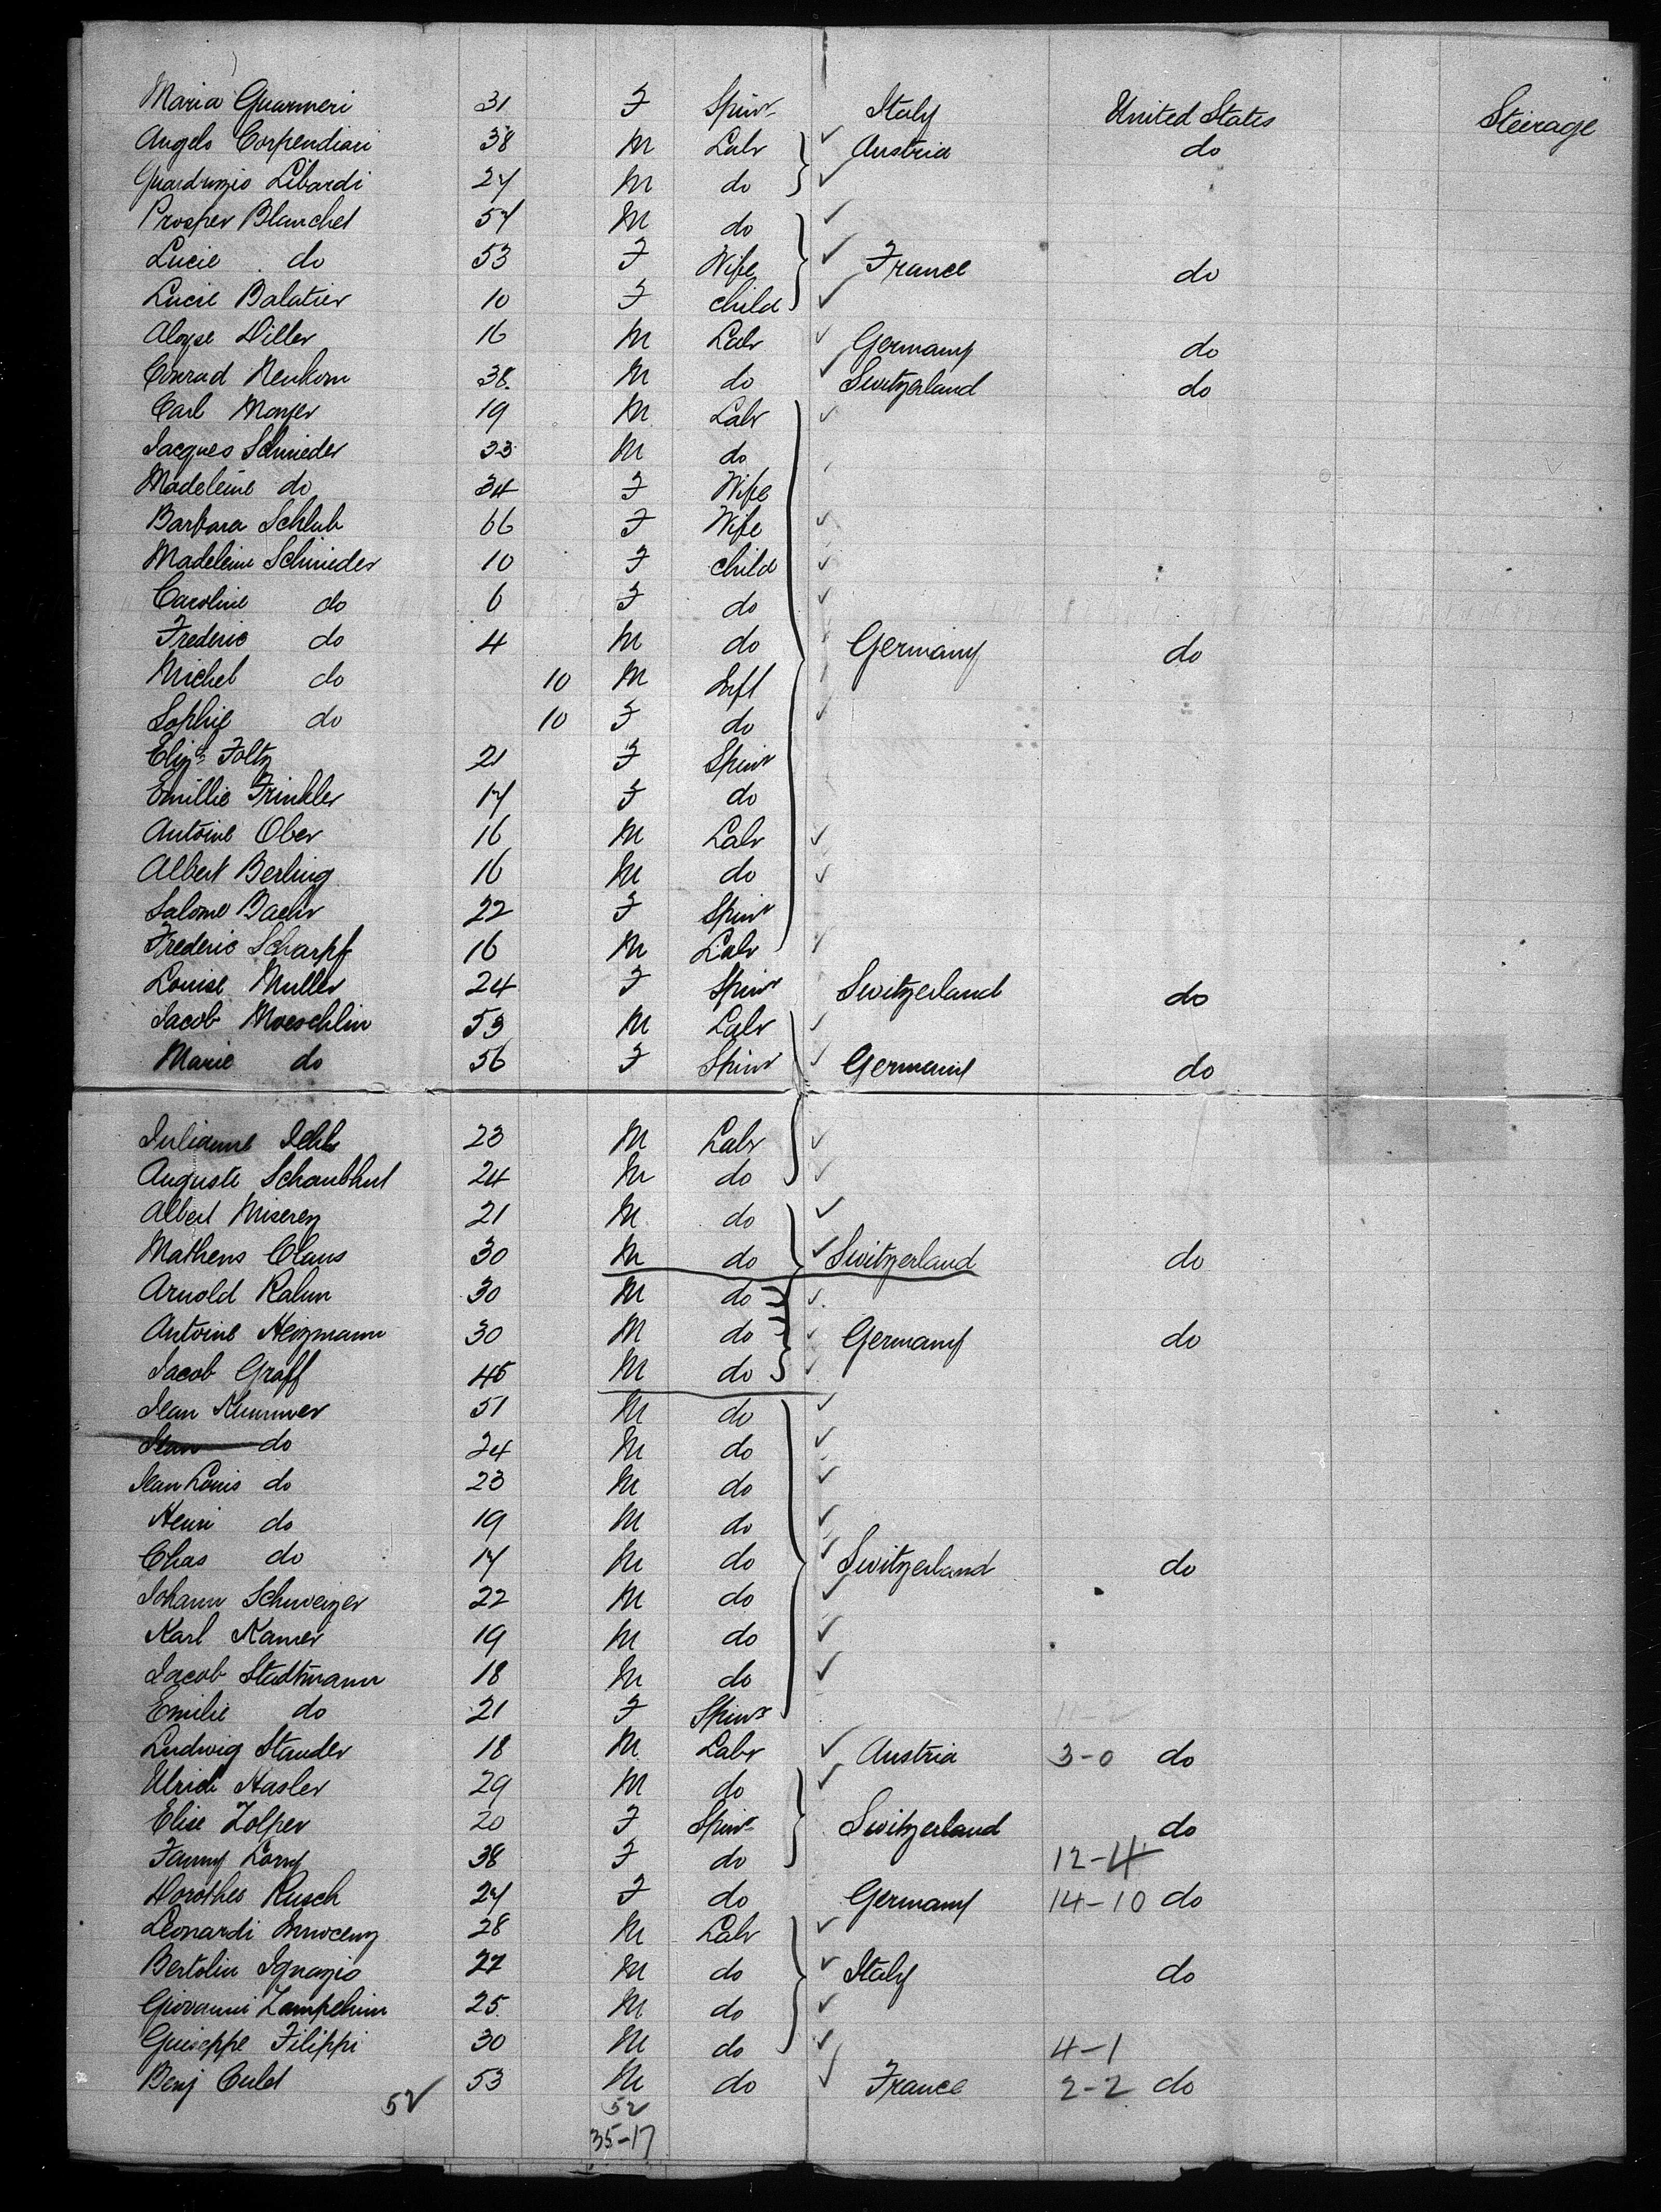 Maria Guarneri 31 F Spinr Italy United States Steerage
Angelo Corpendiari 38 M Labr Austria do
Guardunzio Libardi 27 M do
Prosper Blanchet 57 M do
Lucie do 53 F Wife France do
Lucie Balatier 10 F child
Aloyse Diller 16 M Labr Germany do
Conrad Neukom 38 M do Switzerland do
Carl Moyer 19 M Labr
Jacques Schnieder 33 M do
Madeleine do 34 F Wife
Barbara Schlub 66 F Wife
Madeleine Schnieder 10 F child
Caroline do 6 F do
Frederic do 4 M do Germany do
Michel do 10 M Inft
Sophie do 10 F do
Eliza Foltz 21 F Spinr
Emillie Trinkler 17 F do
Antoine Ober 16 M Labr
Albert Berling 16 M do
Salome Baehr 22 F Spinr
Frederic Scharpf 16 M Labr
Louise Muller 24 F Spinr Switzerland do
Jacob Moeschlin 53 M Labr
Marie do 56 F Spinr Germany do
Julienne 23 M Labr
Auguste Schaubhut 24 M do
Albert Miserez 21 M do
Mathens Claus 30 M do Switzerland do
Arnold Rahm 30 M do
Antoine Herzmann 30 M do Germany do
Jacob Graff 45 M do
Jean Kummer 51 M do
Jean do 24 M do
Jean Louis do 23 M do
Henri do 19 M do
Chas do 17 M do Switzerland do
Johann Schweizer 22 M do
Karl Kamer 19 M do
Jacob Stadtmann 18 M do
Emilie do 21 F Spinr
Ludwig Stauder 18 M Labr Austria 3-0 do
Ulrich Hasler 29 M do
Elise Zolper 20 F Spinr Switzerland do
Fanny Lory 38 F do 12-4
Dorothea Rusch 27 F do Germany 14-10 do
Leonardi Innocenz 28 M Labr
Bertolin Ignazio 27 M do Italy do
Giovanni Zampelini 25 M do
Guiseppe Filippi 30 M do 4-1
Benj Culet 53 M do France 2-2 do
52 52
35-17